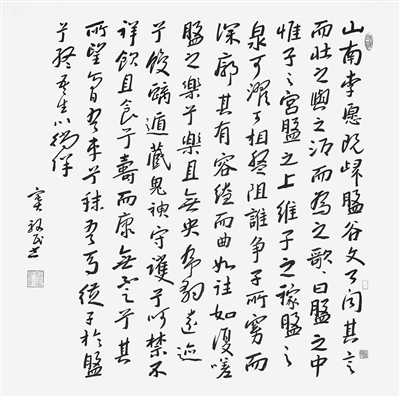 山南李愿既歸盤谷文公聞其言
而壯之與之酒而為之歌曰盤之中
惟子之宮盤之上維子之稼盤之
泉可濯可盤阻誰爭子所而
深廓其有容繚而曲如往如復嗟
盤之樂兮樂且無央虎豹遠迹
兮遁藏鬼神守護兮呵禁不
祥飲且食兮壽而康無兮其
所望膏吾車兮秣吾馬從子於盤
兮終吾生以徜徉